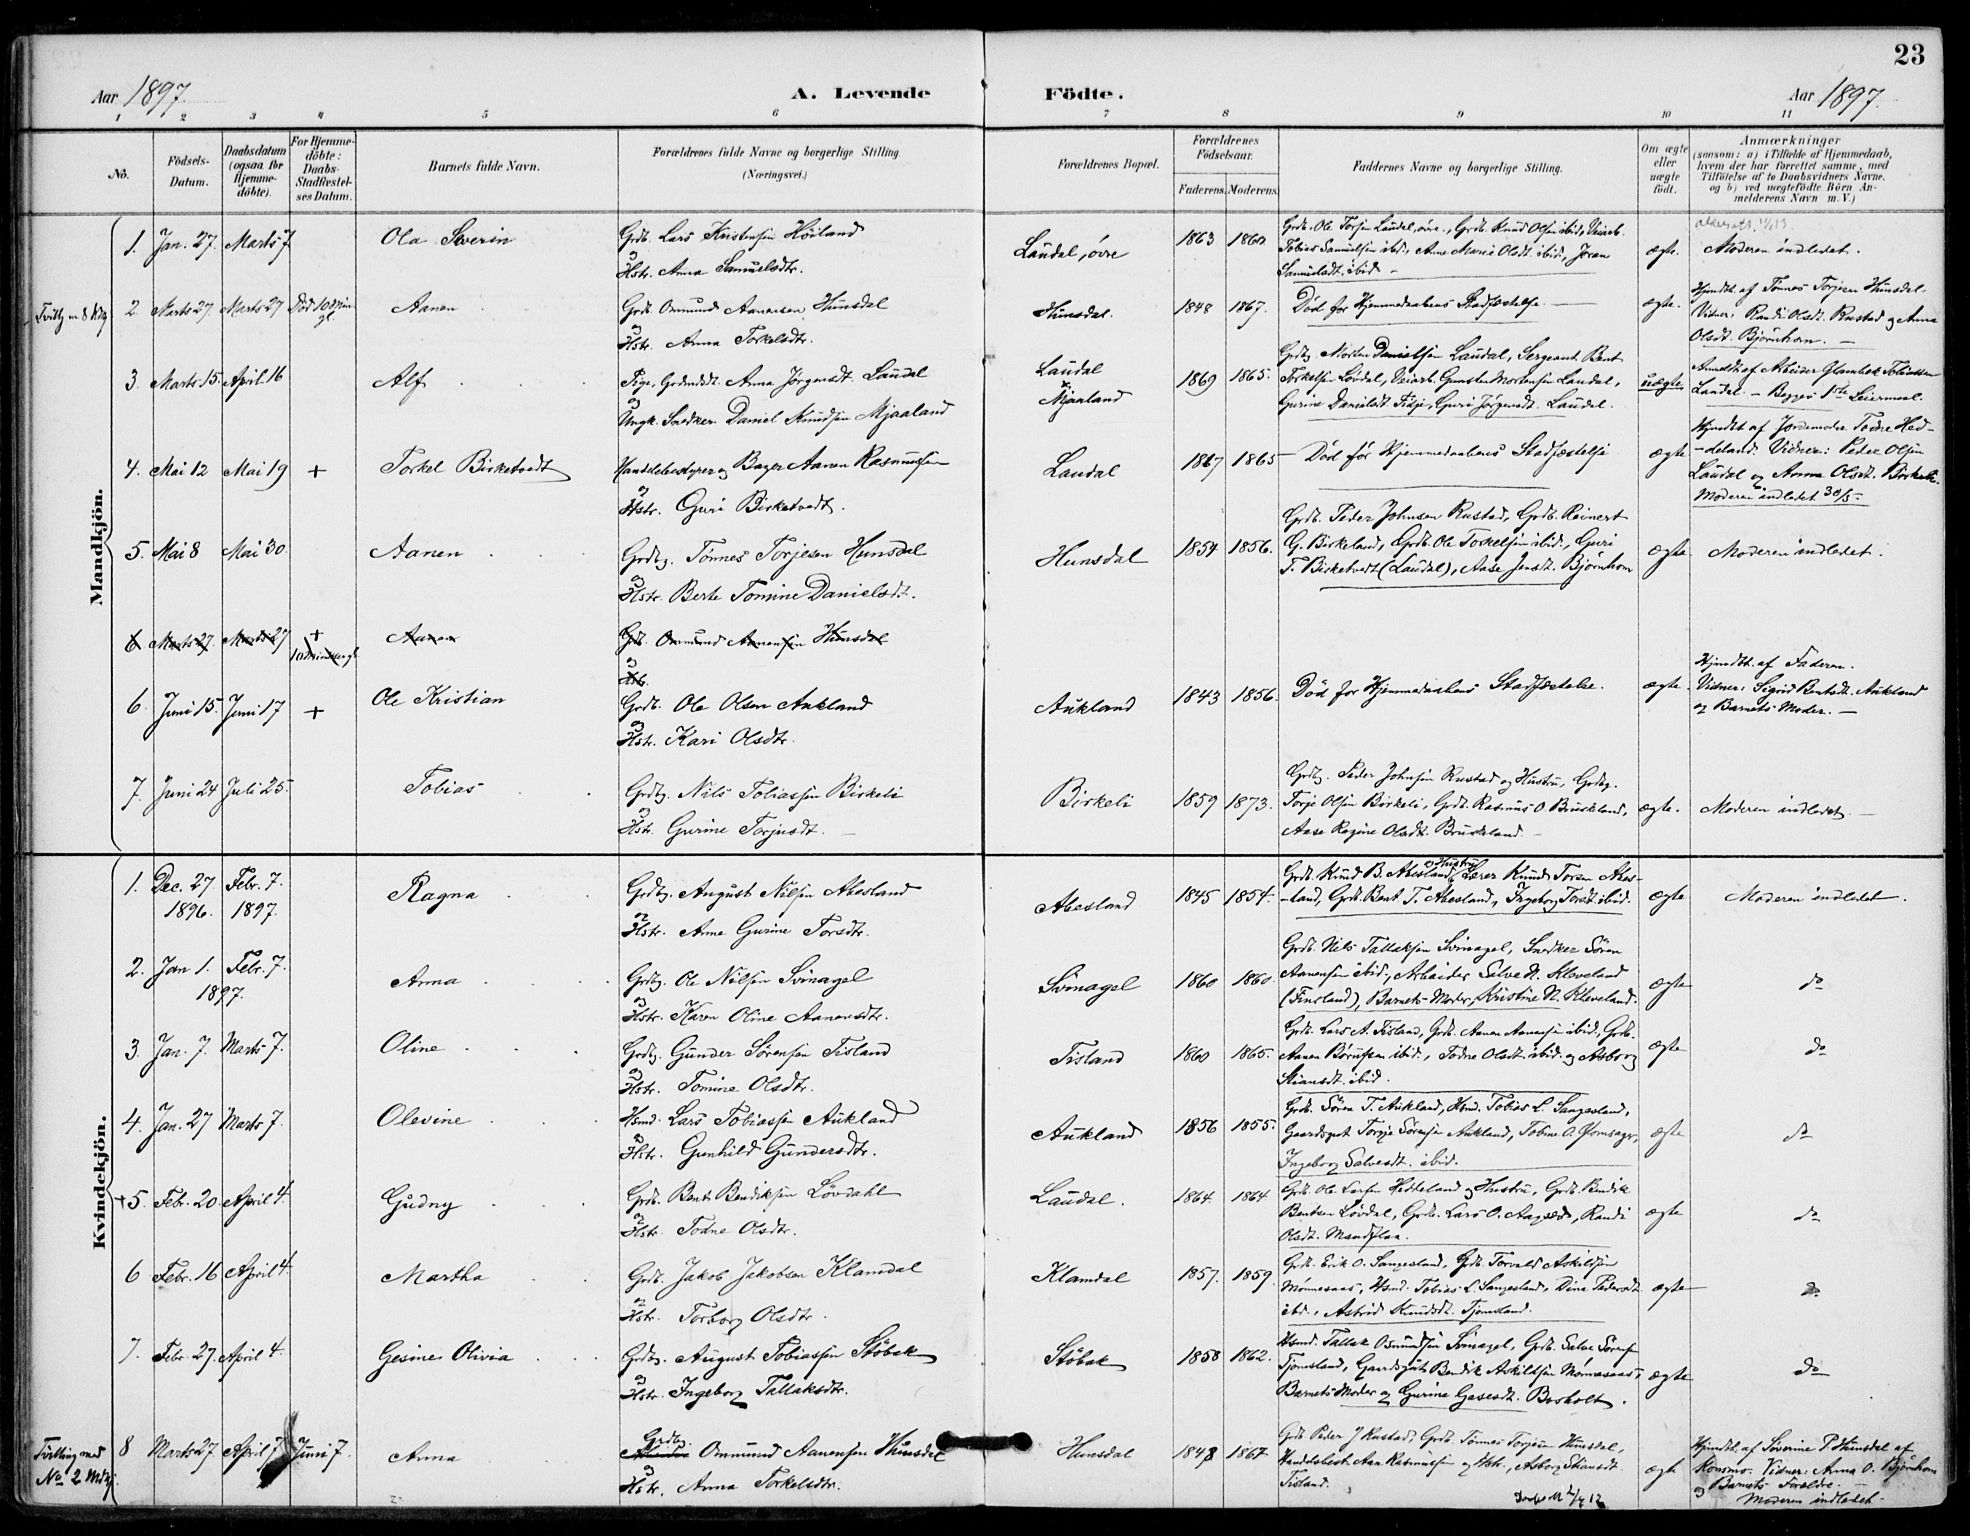 23
Aar 1897. A. Levende Födte. Aar 1897.
1 2 3 4 5 6 7 8 9 10 11
No.
Födsels-Datum.
Daabsdatum (ogsaa før Hjemme-döbte).
For Hjemme-döbte: Daabs-Stadfæstel-ses Datum.
Barnets fulde Navn.
Forældrenes fulde Navne og borgerlige Stilling
(Næringsvei.)
Forældrenes Bopæl.
Forældrenes Födselsaar.
Faderens. Moderens.
Faddernes Navne og borgerlige Stilling.
Om ægte eller uægte födt.
Anmærkninger
(saasom: a) i Tilfælde af Hjemmedaab,
hvem der har forrettet samme, med
Tilföielse af to Daabsvidners Navne,
og b) ved uægtefödte Börn An-
melderens Navn m. V.)
Mandkjön.
1. Jan. 27. Marts 7 Ola Severin
Grdb. Lars Kristensen Höiland
og
Hstr. Anna Samuelsdtr.
Laudal, övre 1863 1860
Grdb. Ole Torjsen Laudal, övre., Grdb. Knud Olsen ibid., Veiarb.
Tobias Samuelsen ibid., Anne Marie Olsdt. ibid., Joran
Samuelsdt. ibid. –
ægte. Moderen indledet.
2 Marts 27. Marts 27 Död 10 Min. gl. Aanen
Grdb. Ommund Aanensen Hunsdal
og
Hstr. Anna Torkelsdtr.
Hunsdal. 1848 1867. Död for Hjemmedaabens Stadfæstelse. ægte.
Hjmdbt. af Tönnes Torjesen Hunsdal.
Vidner: Randi Olsdt. Rustad og Anna
Olsdt. Björnhom. –
3. Marts 15. April 16 Alf
Pige, Grdmdt. Anna Jörgensdt. Laudal
og
Ungk. Snedker Daniel Knudsen Mjaaland
Laudal
Mjaaland
1869 1865.
Grdbg. Morten Danielsen Laudal, Sergeant Bent
Torkelsen Lövdal, Veiarb. Gunsten Mortensen Laudal,
Gurine Danielsdt. Tidje, Guri Jörgensdt. Laudal.
uægte
Laudal. – Begges 1ste Leiermaal.
4. Mai 12 Mai 19 + Torkel Birketvedt
Handelsbestyrer og Bager Aanen Rasmussen
og
Hstr. Guri Birketvedt.
Laudal 1867 1865 Död før Hjemmedaabens Stadfæstelse ægte
Hjmdbt. af Jordemoder Todne Hed-
-deland. Vidner: Peder Olsen
Laudal og Anna Olsdt. Birkeli.
Moderen indledet 30/5 –
5. Mai 8 Mai 30 Aanen
Grdbg. Tönnes Torjesen Hunsdal
og
Hstr. Berte Tomine Danielsdt.
Hunsdal 1854 1856.
Grdb. Peder Johnsen Rustad, Grdb. Reinert
G. Birkeland, Grdb. Ole Torkelsen ibid., Guri
T. Birketvedt (Laudal), Aase Jensdt. Björnhom
ægte Moderen indledet.
6 Marts 27. Marts 27 + Aanen
Grdb. Ommund Aanensen Hunsdal
og
Hstr.
6. Juni 15. Juni 17 + Ole Kristian
Grdb. Ole Olsen Aukland
og
Hstr. Kari Olsdtr.
Aukland 1843 1856. Död for Hjemmedaabens Stadfæstelse. ægte
Hjmdbt. af Faderen.
Vidner: Sigrid Bentsdt. Aukland
og Barnets Moder. –
7. Juni 24 Juli 25. Tobias
Grdbg. Nils Tobiassen Birkeli
og
Hstr. Gurine Torjusdt. –
Birkeli 1859 1873.
Grdbg. Peder Johnsen Rustad og Hustru, Grdbg.
Torje Olsen Birkeli, Grdb. Rasmus O. Bruskeland,
Aase Regine Olsdt. Bruskeland. –
ægte. Moderen indledet. –
Kvindekjön.
1. Dec. 27 Febr. 7.
1896. 1897.
Ragna
Grdbg. August Nilsen Abesland
og
Hstr. Anne Gurine Torsdtr.
Abesland 1845 1854.
Grdb. Knud B. Abesland og Hustru, Lærer Knud Torsen Abes-
-land, Grdb. Bent T. Abesland, Ingeborg Torsdt. ibid.
ægte Moderen indledet.
2. Jan 1. Febr. 7.
1897.
Anna
Grdbg. Ole Nilsen Svinagel
og
Hstr. Karen Oline Aanensdtr.
Svinagel 1860 1860
Grdb. Nils Tallaksen Svinagel, Snedker Sören
Aanensen ibid., Arbeider Salve N. Kleveland
(Finsland), Barnets Moder, Kristine N. Kleveland.
ægte do
3. Jan. 7. Marts 7. Oline
Grdbg. Gunder Sörensen Tisland
og
Hstr. Tomine Olsdtr.
Tisland 1860 1865.
Grdb. Lars A. Tisland, Grdb. Aanen Aanensen ibid., Grdb.
Aanen Börufsen ibid., Todne Olsdt. ibid. og Asborg
Stiansdt. ibid.
ægte do
4. Jan. 27 Marts 7. Olevine
Hsmd. Lars Tobiassen Aukland
og
Hstr. Gunhild Gundersdtr.
Aukland 1856 1855.
Grdb. Sören T. Aukland, Hsmd. Tobias L. Sangesland,
Gaardsgut Torje Sörensen Aukland, Tobine O.
Ingeborg Salvesdt. ibid.
ægte do
+5. Febr. 20. April 4. Gudny
Grdb. Bent Bendiksen Lövdahl
og
Hstr. Todne Olsdtr.
Laudal. 1864. 1864
Grdb. Ole Larsen Heddeland og Hustru, Grdb. Bendik
Bentsen Lövdal, Grdb. Lars O. Aagsæd, Randi
Olsdt. Mandflaa.
ægte do
6 Febr. 16 April 4. Martha
Grdb. Jakob Jakobsen Klamdal
og
Hstr. Torborg Olsdtr.
Klamdal 1857. 1859.
Grdb. Erik O. Sangesland, Grdb. Torvald Askildsen
Mönnesaas, Hsmd. Tobias L. Sangesland, Dina Pedersdt.
ibd., Astrid Knudsdt. Tjomsland.
ægte do
7 Febr. 27. April 4. Gesine Olivia
Grdbg. August Tobiassen Stöbak
og
Hstr. Ingeborg Tallaksdtr.
Stöbak 1858 1862.
Hsmd. Tallak Osmundsen Svinagel, Grdb. Salve Sörensen
Tjomsland, Gaardsgut Bendik Askildsen Mönnesaas,
Barnets Moder og Gurine Gasesdt. Bosholt.
ægte do
8 Marts 27 April 7 Juni 7. Anna
Grdbg.
Ommund Aanensen Hunsdal
og
Hstr. Anna Torkelsdtr.
Hunsdal 1848 1867
Grdb. Peder J. Rustad, Grdb. Tönnes Torjesen Hunsdal,
Handelsbest. Aan. Rasmussen og Hstr., Asborg Stiansdt.
Tisland.
ægte
Hjmdbt. af Severine P. Hunsdal af
Konsmo. Vidner: Anna O. Björnhom
og Barnets Forældre. –
Moderen indledet. –
Tvilling med
No 2 Mdkj.